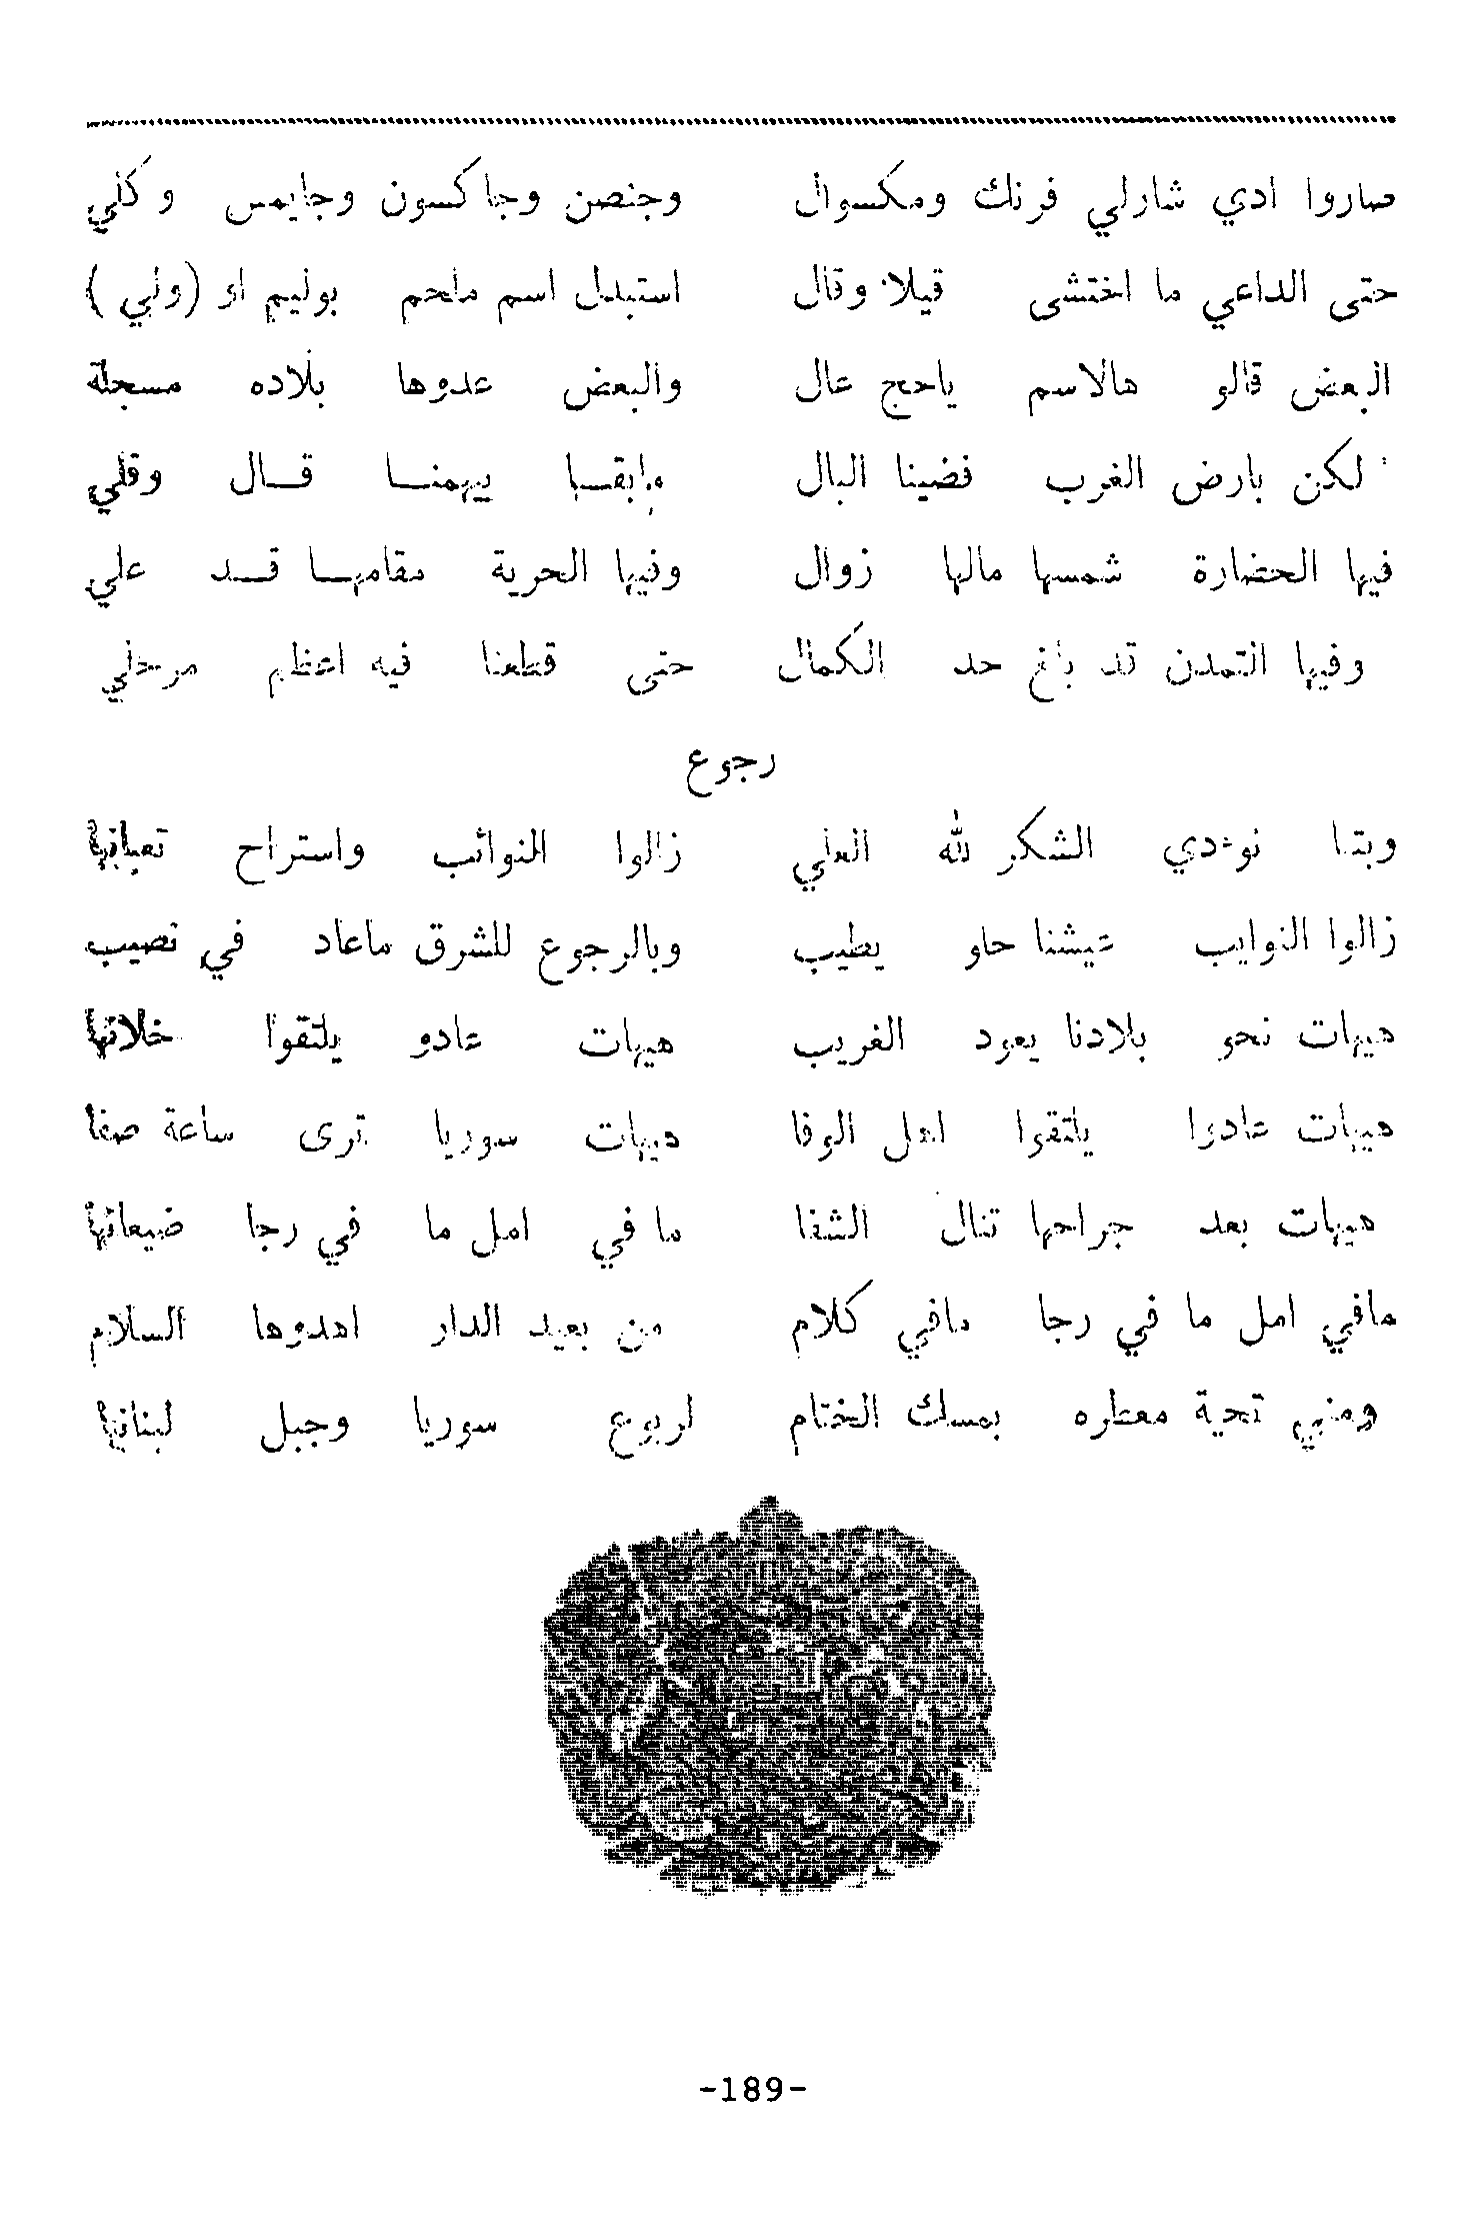 صاروا ادي شارلي فرنك ومكسوال وجنصن وجاكسون وجايمس وكلي
حتى الداعي ما اختشى قيلا وقال استبدل اسم ملحم بوليم او (ولي)
البعض قالو هالاسم ياحج عال والبعض عدوها بلاده مسجلة
لكن بارض الغرب فضينا البال مابقا بيهمنا قال وقلي
فيها الحضارة شمسها مالها زوال وفيها الحرية مقامها قد علي
وفيها التمدن قد بلغ حد الكمال حتى قطعنا فيه اعظم مرحلي
رجوع
وبتنا نوءدي الشكر لله العلي زالوا النوائب واستراح تعبانها
زالوا النوايب عيشنا حلو يطيب وبالرجوع للشرق ماعاد في نصيب
هيهات نحو بلادنا يعود الغريب هيهات عادو يلتقوا خلانها
هيهات عادوا يلتقوا اهل الوفا هيهات سوريا ترى ساعة صفا
هيهات بعد جراحها تنال الشفا ما في امل ما في رجا ضيعانها
مافي امل ما في رجا مافي كلام من بعيد الدار اهدوها السلام
ومني تحية معطره بمسك الختام لربوع سوريا وجبل لبنانها
-189-